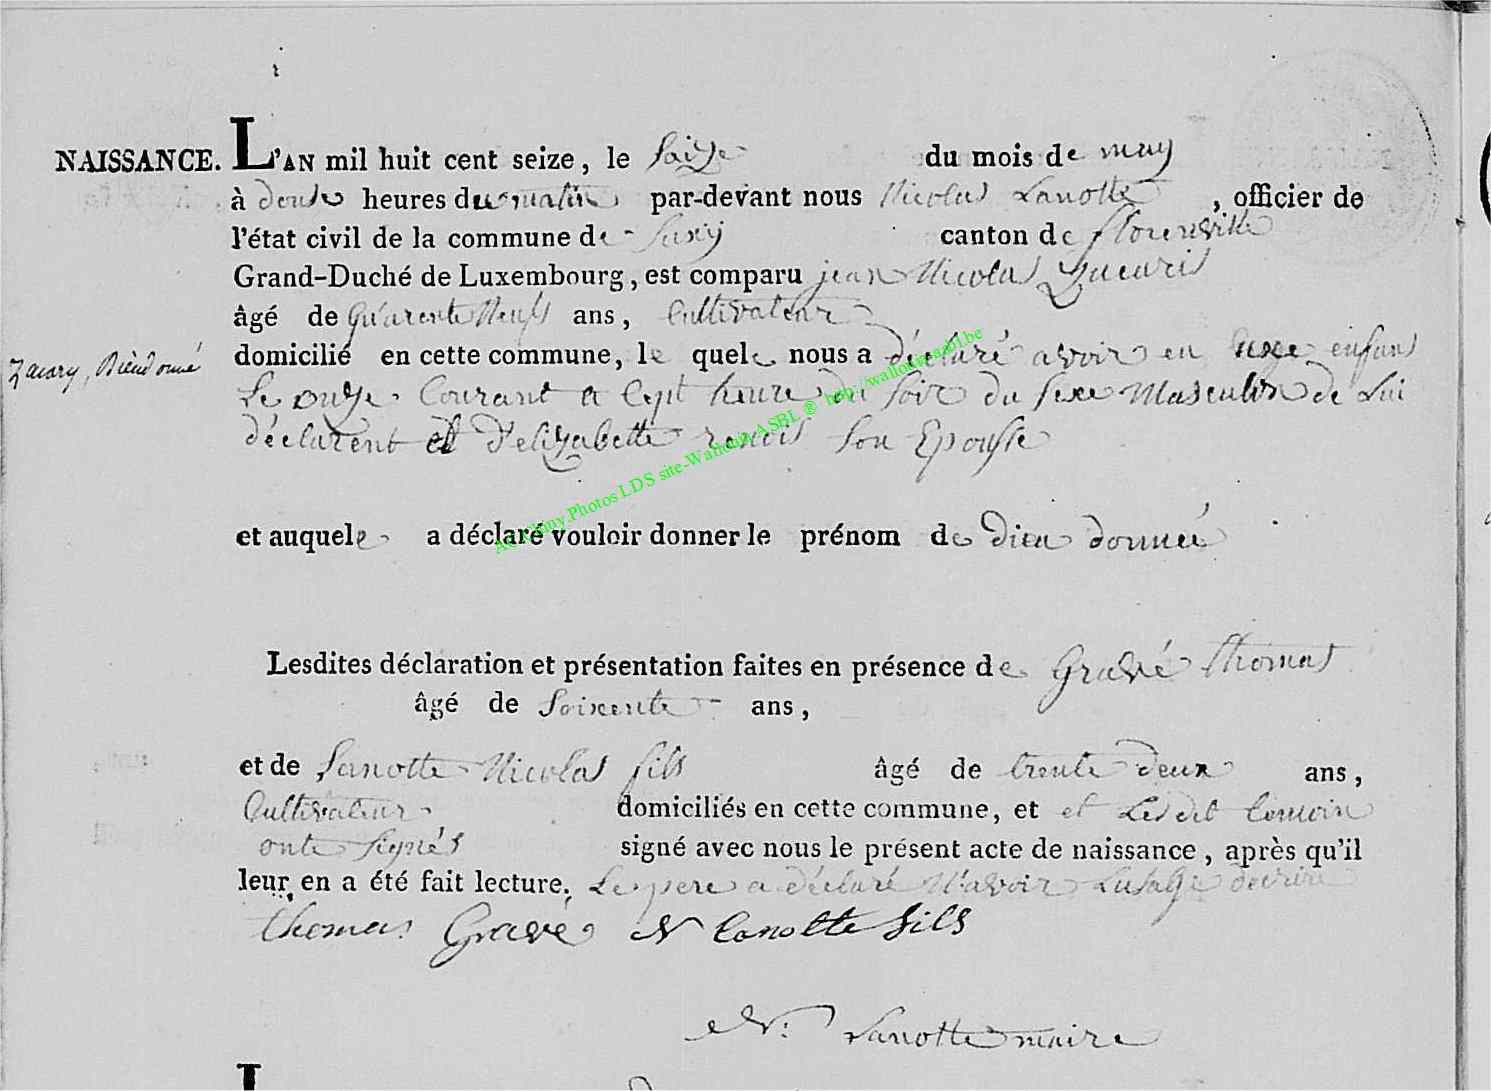 NAISSANCE. L'AN mil huit cent seize, le saize du mois de may
à douse heures du matin par-devant nous Nicolas Lanotte, officier de
l'état civil de la commune de Suxy canton de florenville
Grand-Duché de Luxembourg, est comparu jean Nicolas Zacaris
âgé de Quarente Neufs ans, Cultivateur
Zacary, Dieudonné
domicilié en cette commune, le quel nous a déclaré avoir eu enfans
Le onze Courant a Sept heure du soir du sexe Masculin de Lui
déclarent et d'elizabette son Epouse
et auquel a déclaré vouloir donner le prénom de Dieu donné
Lesdites déclaration et présentation faites en présence de Gravé thomas
âgé de Soixente ans,
et de Lanotte Nicolas fils âgé de trente deux ans,
Cultivateur domiciliés en cette commune, et et Lesdit temoin
onte signés signé avec nous le présent acte de naissance, après qu'il
leur en a été fait lecture. Le pere a déclaré N'avoir Lusage decrire
thomas Gravé N lanotte fils
N: Lanotte maire
L
Ac Chiny.Photos LDS site-Wallonia ASBL ® http://wallonia-asbl.be